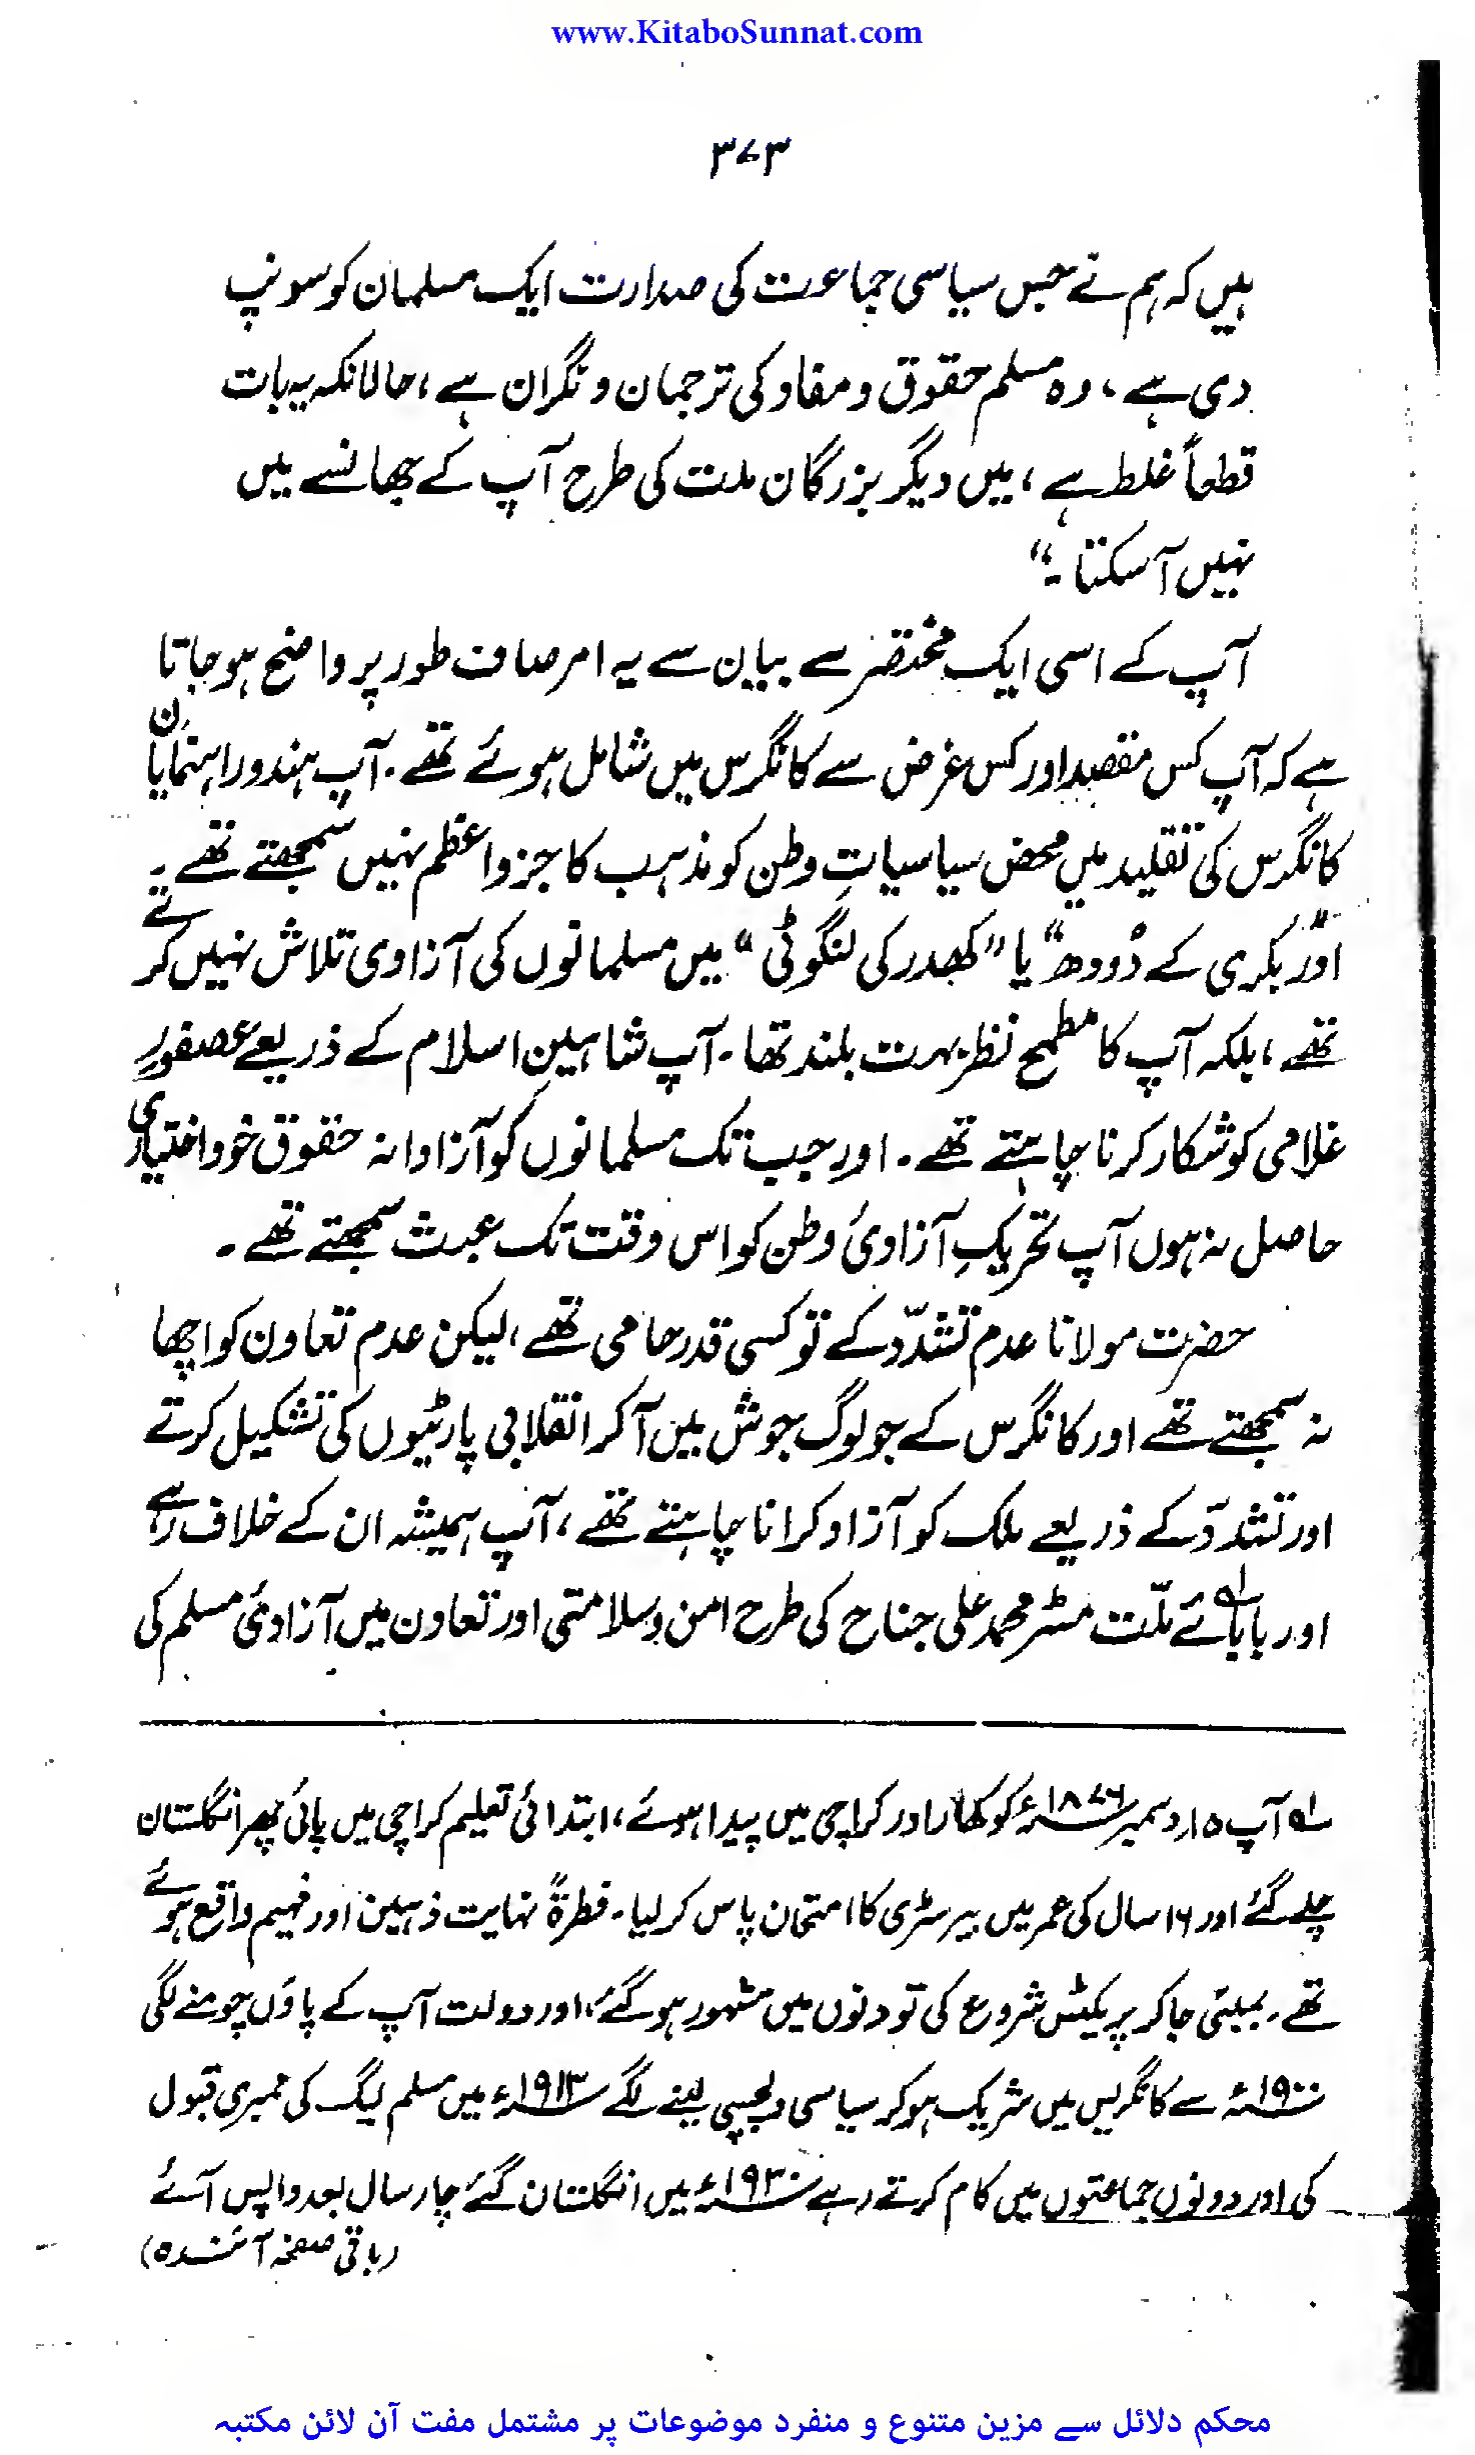 www.KitaboSunnat.com
۳۷۳
ہیں کہ ہم نے جس سیاسی جماعت کی صدارت ایک مسلمان کو سونپ
دی ہے، وہ مسلم حقوق و مفاد کی ترجمان و نگران ہے، حالانکہ یہ بات
قطعاً غلط ہے، میں دیگر بزرگان ملت کی طرح آپ کے جھانسے میں
نہیں آسکتا۔"
آپ کے اسی ایک مختصر سے بیان سے یہ امر صاف طور پر واضح ہو جاتا
ہے کہ آپ کس مقصد اور کس غرض سے کانگرس میں شامل ہوئے تھے۔ آپ ہندو راہنمایانِ
کانگرس کی تقلید میں محض سیاسیاتِ وطن کو مذہب کا جزو اعظم نہیں سمجھتے تھے۔
اور "بکری کے دودھ" یا "کھدر کی لنگوٹی" میں مسلمانوں کی آزادی تلاش نہیں کرتے
تھے، بلکہ آپ کا مطمح نظر بہت بلند تھا۔ آپ شاہینِ اسلام کے ذریعے عصفورِ
غلامی کو شکار کرنا چاہتے تھے۔ اور جب تک مسلمانوں کو آزادانہ حقوق خود اختیاری
حاصل نہ ہوں آپ تحریکِ آزادیٔ وطن کو اس وقت تک عبث سمجھتے تھے۔
حضرت مولانا عدم تشدّد کے تو کسی قدر حامی تھے، لیکن عدم تعاون کو اچھا
نہ سمجھتے تھے اور کانگرس کے جو لوگ جوش میں آکر انقلابی پارٹیوں کی تشکیل کرتے
اور تشدّد کے ذریعے ملک کو آزاد کرانا چاہتے تھے، آپ ہمیشہ ان کے خلاف رہے
اور بابائے ملّت مسٹر محمد علی جناح کی طرح امن و سلامتی اور تعاون میں آزادیٔ مسلم کی
لہ آپ ۱۵ دسمبر ۱۸۷۶ء کو کھارادر کراچی میں پیدا ہوئے، ابتدائی تعلیم کراچی میں پائی پھر انگلستان
چلے گئے اور ۱۶ سال کی عمر میں بیرسٹری کا امتحان پاس کر لیا۔ فطرۃً نہایت ذہین اور فہیم واقع ہوئے
تھے۔ بمبئی جاکر پریکٹس شروع کی تو دنوں میں مشہور ہوگئے، اور دولت آپ کے پاؤں چومنے لگی
۱۹۰۰ء سے کانگریس میں شریک ہوکر سیاسی دلچسپی لینے لگے ۱۹۱۳ء میں مسلم لیگ کی ممبری قبول
کی اور دونوں جماعتوں میں کام کرتے رہے ۱۹۳۰ء میں انگلستان گئے چار سال بعد واپس آئے
(باقی صفحہ آئندہ)
محکم دلائل سے مزین متنوع و منفرد موضوعات پر مشتمل مفت آن لائن مکتبہ